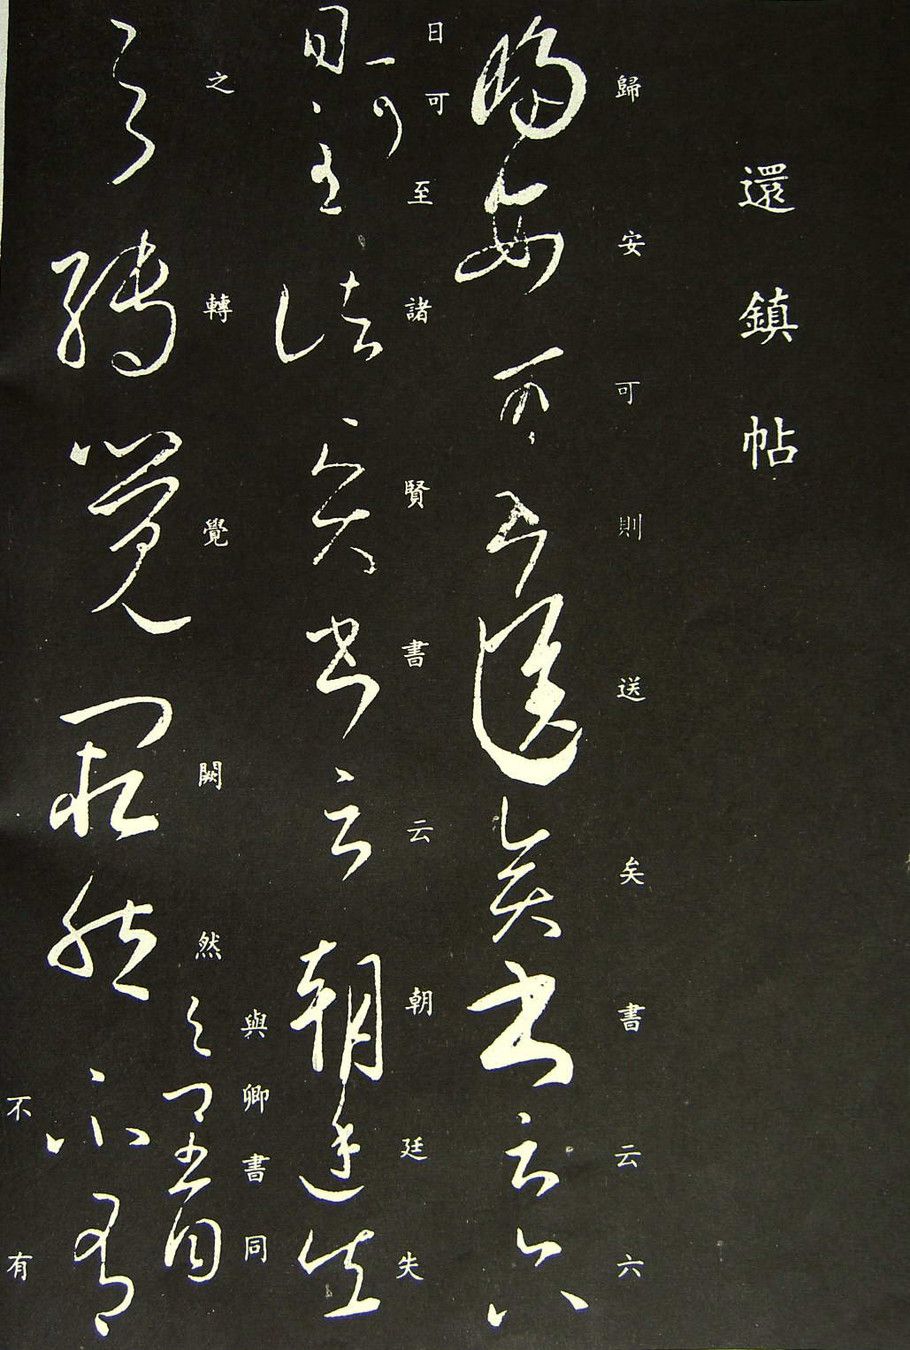 還鎮帖
歸安可則送矣書云六
日可至諸賢書云朝廷失
之轉覺闕然不有
與卿書同